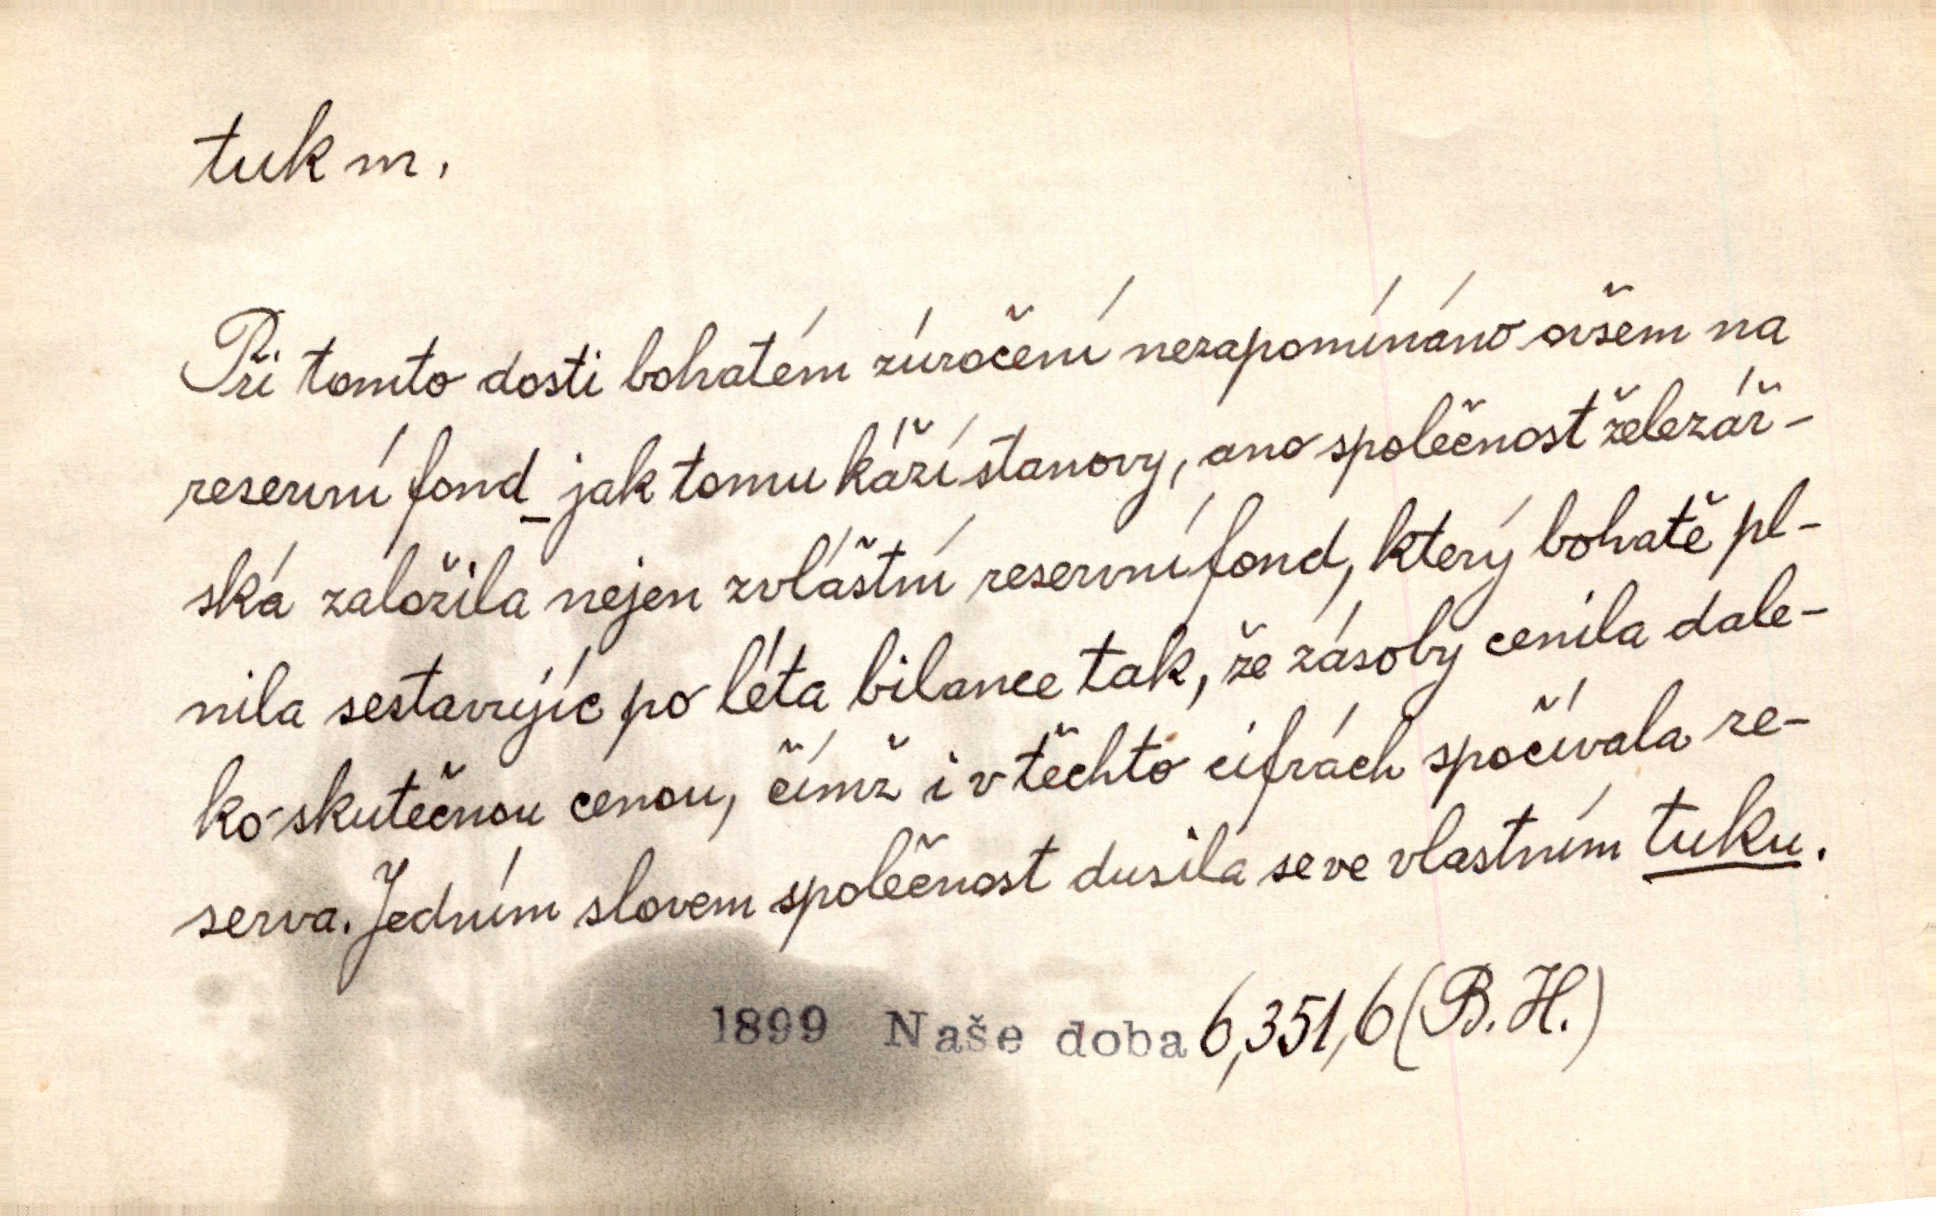 tuk m.
Při tomto dosti bohatém zúročení nezapomínáno ovšem na
reservní fond_ jak tomu káží stanovy, ano společnost železář-
ská založila nejen zvláštní reservní fond, který bohatě pl-
nila sestavujíc po léta bilance tak, že zásoby cenila dale-
ko skutečnou cenou, čímž i v těchto cifrách spočívala re-
serva. Jedním slovem společnost dusila se ve vlastním tuku.
1899 Naše doba 6,351,6 (B. H.)